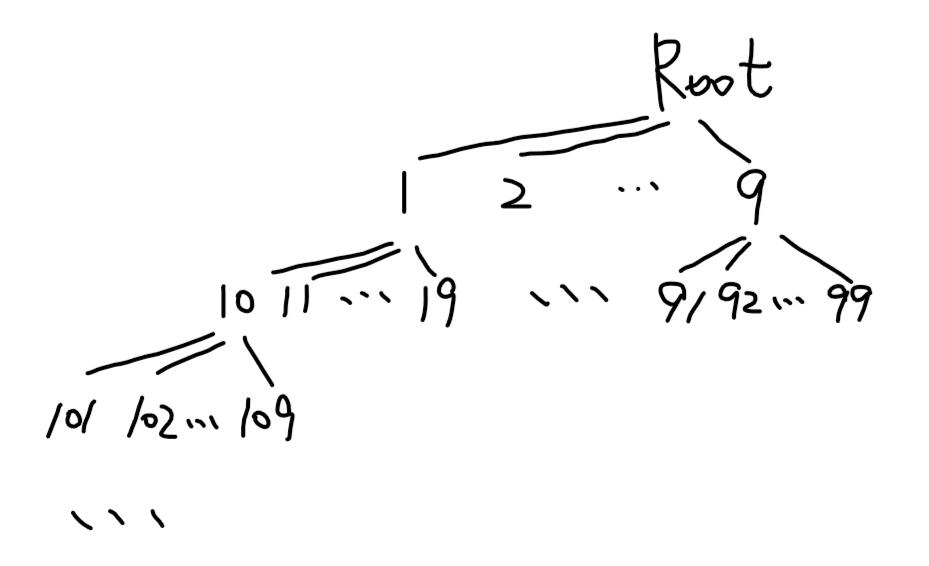 Root
1 2 ... 9
10 11 ... 19 ... 91 92 ... 99
101 102 ... 109
...